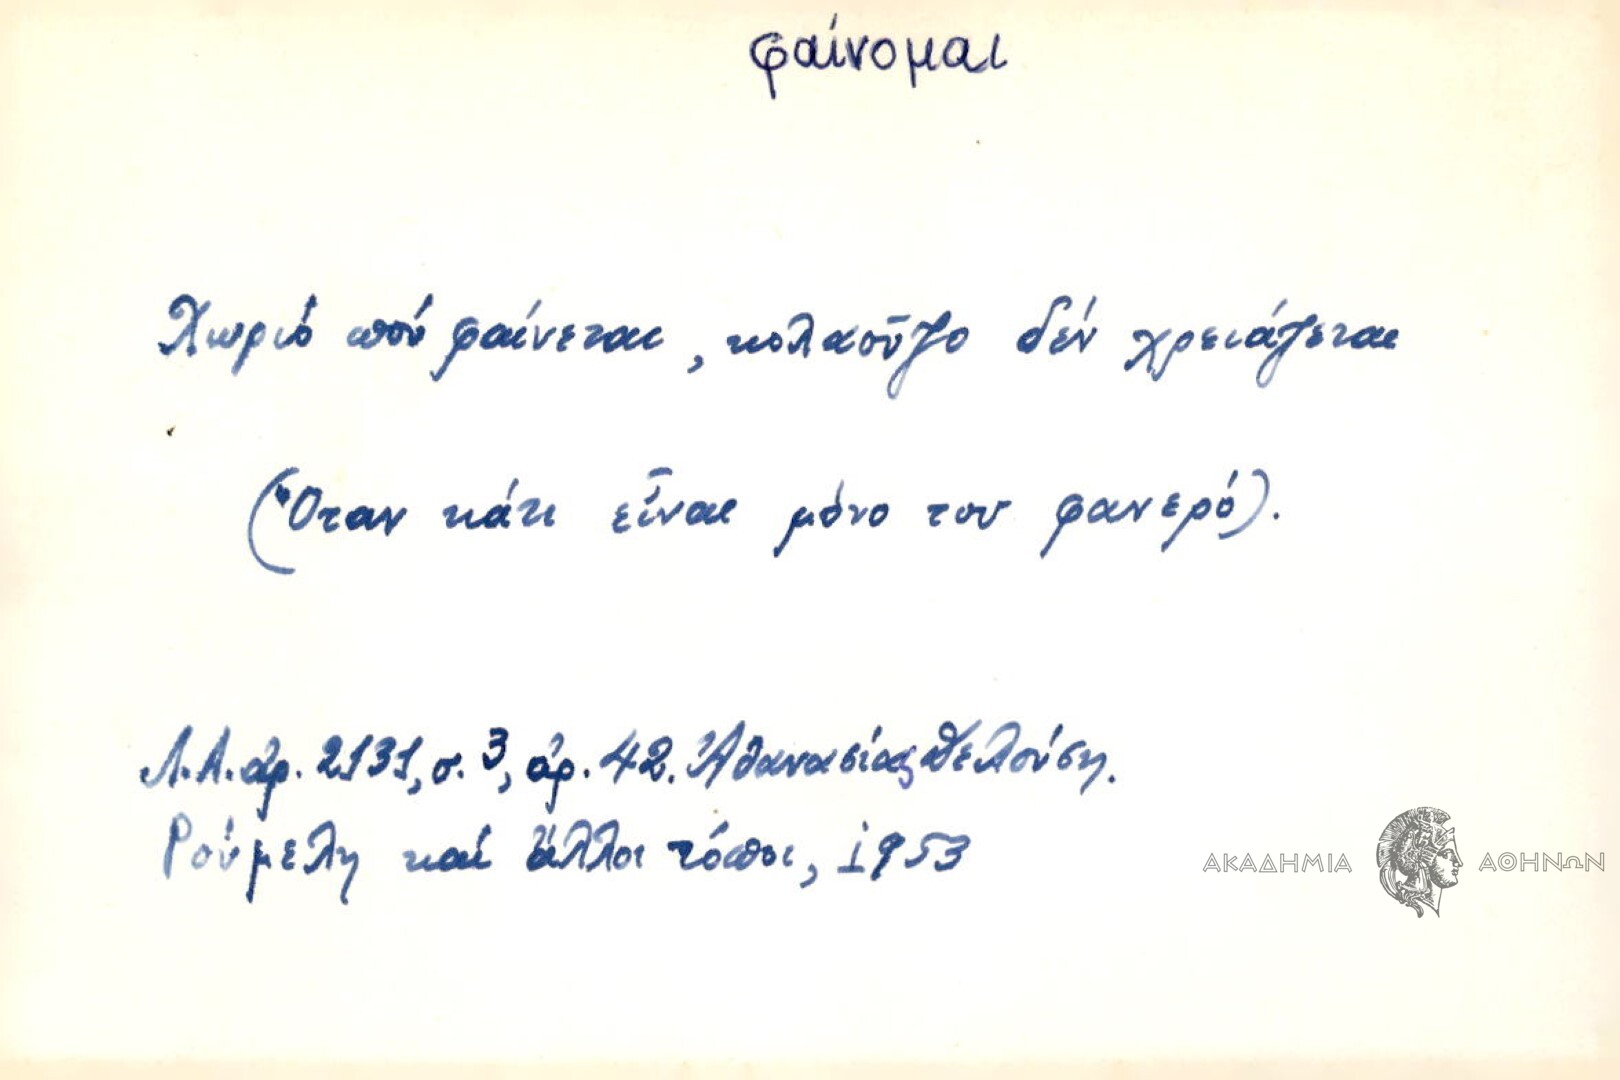 φαίνομαι
Χωριό πού φαίνεται, κολαοῦζο δέν χρειάζεται
(Ὅταν κάτι εἶναι μόνο του φανερό).
Λ.Α. ἀρ. 2131, σ. 3, ἀρ. 42. Ἀθανασίας
Ρούμελη καί ἄλλοι τόποι, 1953
ΑΚΑΔΗΜΙΑ ΑΘΗΝΩΝ